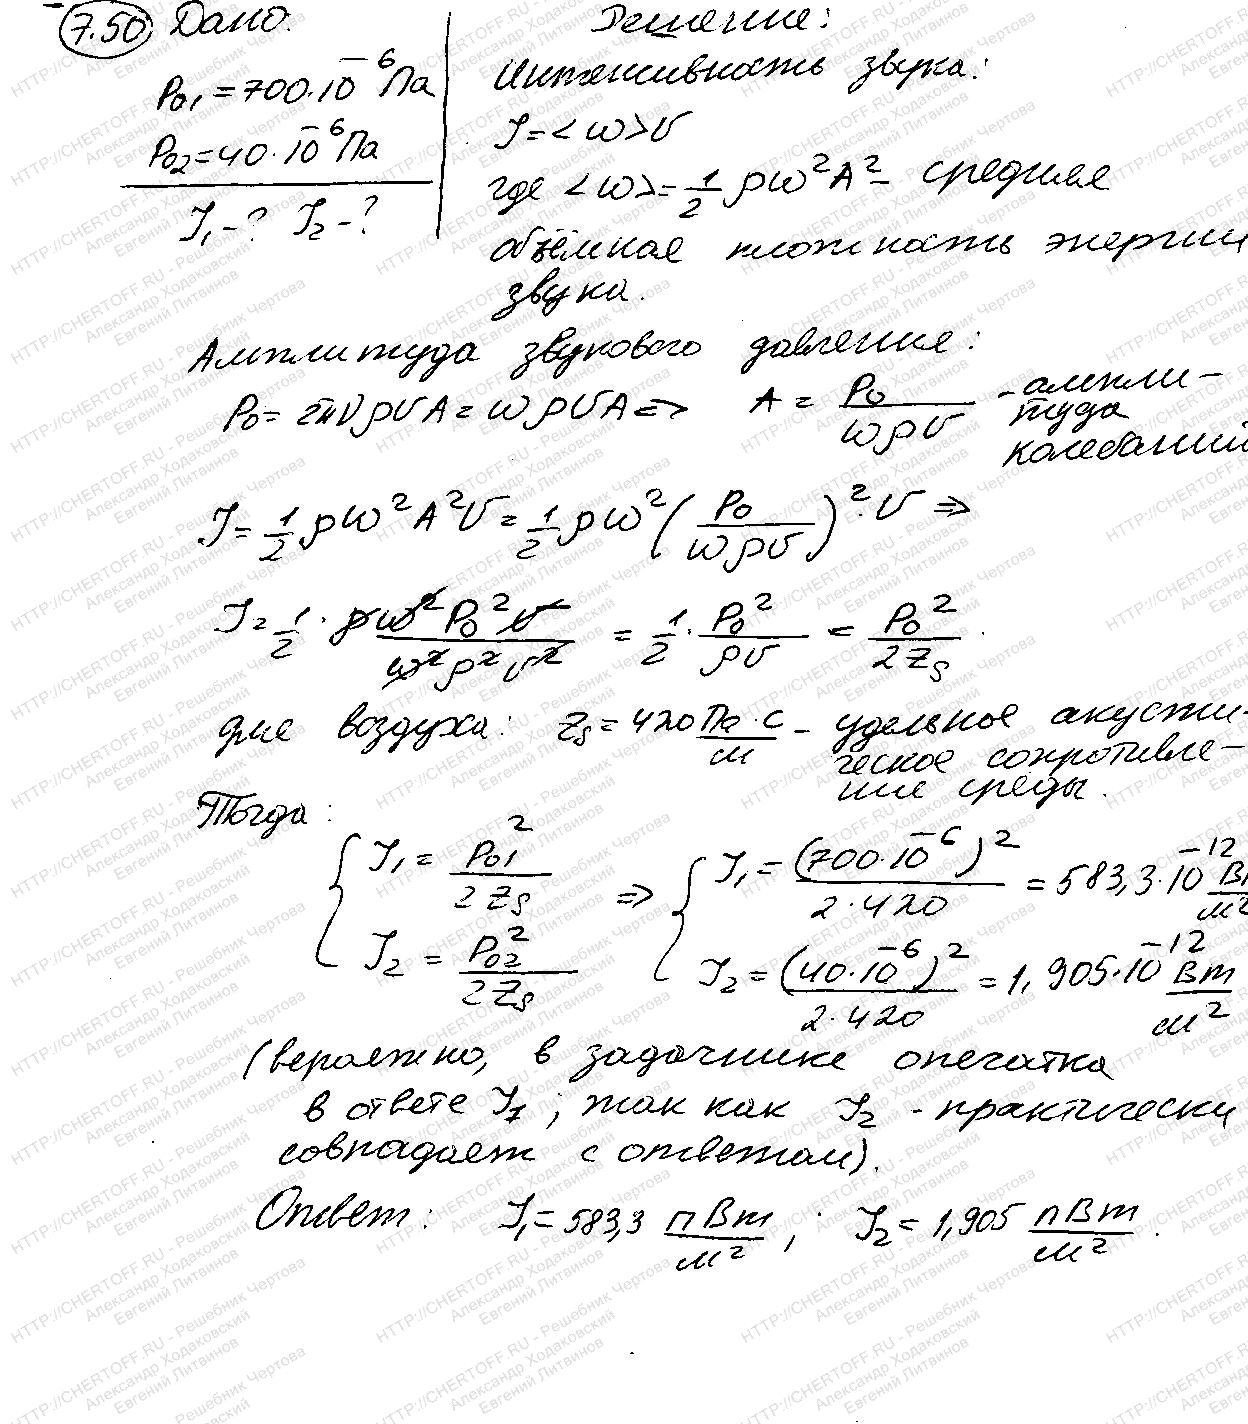 7.50 Дано: Решение:
P₀₁ = 700·10⁻⁶ Па
P₀₂ = 40·10⁻⁶ Па
J₁ - ? J₂ - ?
Интенсивность звука:
J = <w>υ
где <w> = 1/2 ρω²A² - средняя
объёмная плотность энергии
звука.
Амплитуда звукового давления:
P₀ = 2πνρυA = ωρυA => A = P₀/(ωρυ) - ампли-
туда
колебаний
J = 1/2 ρω²A²υ = 1/2 ρω² (P₀/(ωρυ))²·υ =>
J = 1/2 · ρω²P₀²υ/(ω²ρ²υ²) = 1/2 · P₀²/(ρυ) = P₀²/(2Zs).
для воздуха: Zs = 420 Па·с/м - удельное акусти-
ческое сопротивле-
ние среды.
Тогда:
{ J₁ = P₀₁²/(2Zs) => { J₁ = (700·10⁻⁶)²/(2·420) = 583,3·10⁻¹² Вт/м²
J₂ = P₀₂²/(2Zs) J₂ = (40·10⁻⁶)²/(2·420) = 1,905·10⁻¹² Вт/м²
(вероятно, в задачнике опечатка
в ответе J₁, так как J₂ - практически
совпадает с ответом).
Ответ: J₁ = 583,3 пВт/м²; J₂ = 1,905 пВт/м².
HTTP://CHERTOFF.RU - Решебник Чертова
Александр Ходаковский
Евгений Литвинов